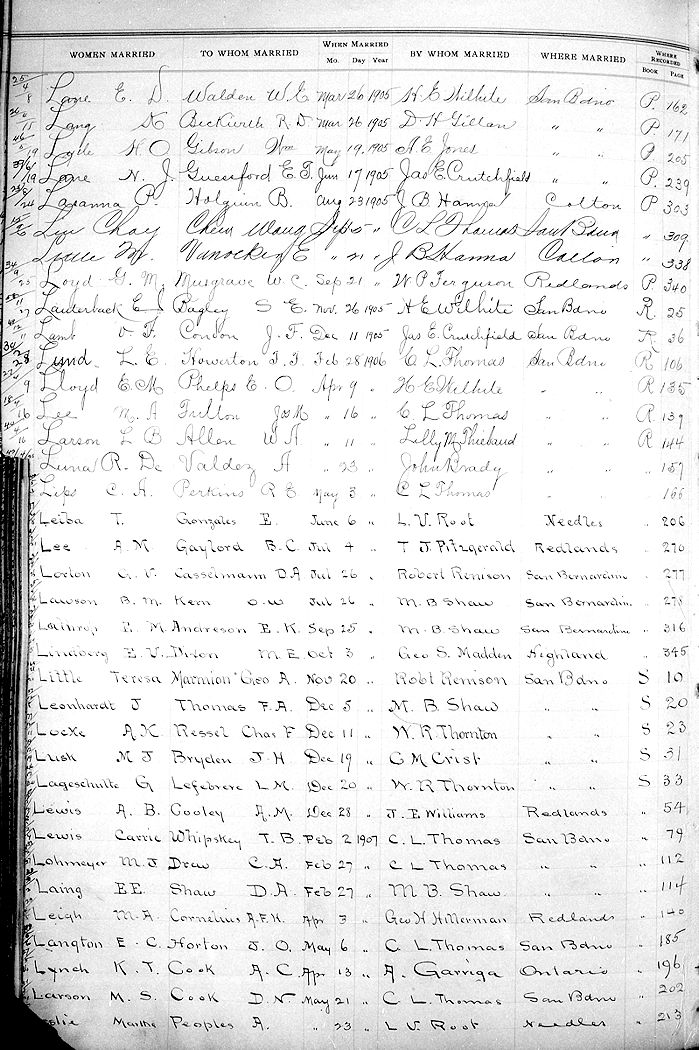 WOMEN MARRIED TO WHOM MARRIED WHEN MARRIED Mo. Day Year BY WHOM MARRIED WHERE MARRIED WHERE RECORDED BOOK PAGE
Lane E. D. Walden W. E. Mar 26 1905 H. E. Wilhite San Bdno P. 162
Lang Beckwith R. D. Mar 26 1905 D. H. Gillan " " P 171
H. O. Gibson Wm May 19, 1905 A. E. Jones " " P 205
Lane N. J. Guessford E. T. Jun 17 1905 Jas E. Crutchfield " " P. 239
P. Holguin B. Aug 23 1905 J B Hanna Colton P 303
Chay Wong Sep 5 " C L Thomas San Bdno " 309
M. E " 21 " J. B Hanna Colton " 338
Loyd G. M. Musgrave W. C. Sep 21 " W. P. Ferguson Redlands P 340
Lauterback E J Bagley S. E. Nov. 26 1905 H. E. Wilhite San Bdno R. 25
Lamb F. Condon J. F. Dec 11 1905 Jas E. Crutchfield San Bdno R 36
Lund L. E. Howerton F. F. Feb 28 1906 C. L. Thomas San Bdno R 106
Lloyd E. M Phelps E. O. Apr 9 " H. E. Wilhite " " R 135
Lee M. A Fulton Jos M " 16 " C. L Thomas " " R 139
Larson L B Allen W A " 11 " Lilly M. Thiebaud " " R 144
Luna R. De Valdez A " 23 " John Brady " " " 157
Lips C. A. Perkins R E May 3 " C L Thomas " "
Leiba T. Gonzales E. June 6 " L. V. Root Needles " 206
Lee A. M. Gaylord B. C. Jul 4 " T J. Fitzgerald Redlands " 270
Lorton V. Casselmann D A Jul 26 " Robert Renison San Bernardino " 277
Lawson B. M. Kern O. W Jul 26 " M. B Shaw San Bernardino " 278
Lathrop E. M Andreson E. K. Sep 25 " M. B. Shaw San Bernardino " 316
Lindberg E. V. Dixon M. E. Oct 3 " Geo S. Madden Highland " 345
Little Teresa Marmion Geo A. Nov 20 " Robt Renison San Bdno S 10
Leonhardt J Thomas F. A. Dec 5 " M. B. Shaw " " S 20
Locke A. K. Ressel Chas F Dec 11 " W. R. Thornton " " S 23
Lusk M. J Bryden J. H. Dec 19 " G M Crist " " S 31
Lageschulte G Lefebvre L. M. Dec 20 " W. R Thornton " " S 33
Lewis A. B. Cooley A. M. Dec 28 " J. E. Williams Redlands " 54
Lewis Carrie Whipskey T. B. Feb 2 1907 C. L. Thomas San Bdno " 79
Lohmeyer M. J Drew C. A. Feb 27 " C L Thomas " " " 112
Laing E E. Shaw D. A. Feb 27 " M B. Shaw " " " 114
Leigh M. A. Cornelius A. F. H. Apr 3 " Geo H Hillerman Redlands " 140
Langton E. C. Horton J. O. May 6 " C. L Thomas San Bdno " 185
Lynch K. T. Cook A. C. Apr 13 " A. Garriga Ontario " 196
Larson M. S. Cook D. N May 21 " C L. Thomas San Bdno " 202
Martha Peoples A. " 23 " L V. Root Needles " 213